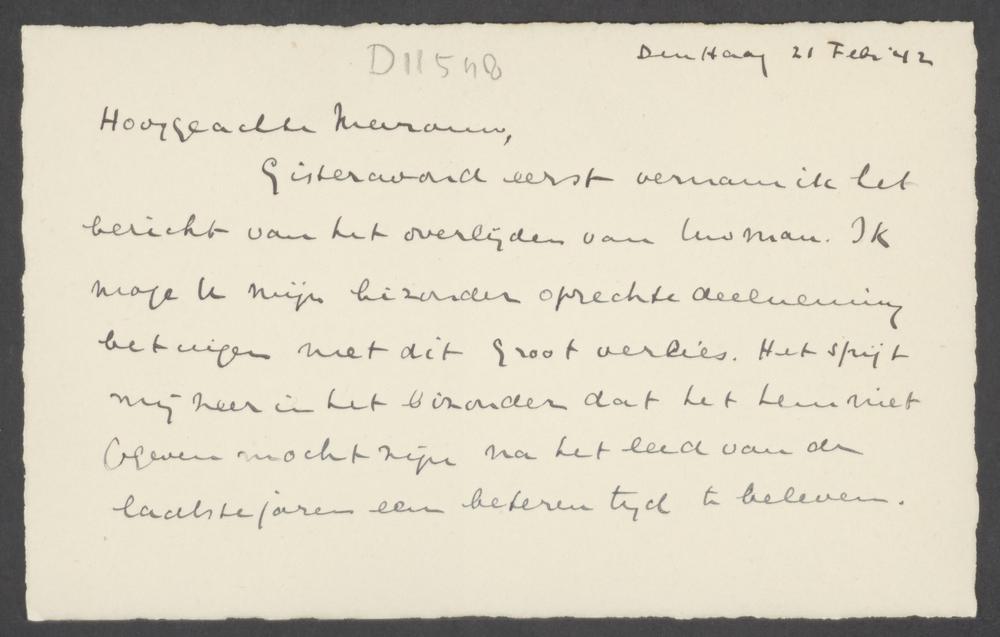 D11548
Den Haag 21 Febr '42
Hooggeachte Mevrouw,
Gisteravond eerst vernam ik het
bericht van het overlijden van Uw man. Ik
moge U mijn bizonder oprechte deelneming
betuigen met dit groot verlies. Het spijt
mij zeer in het bizonder dat het hem niet
gegeven mocht zijn na het leed van de
laatste jaren een beteren tijd te beleven.